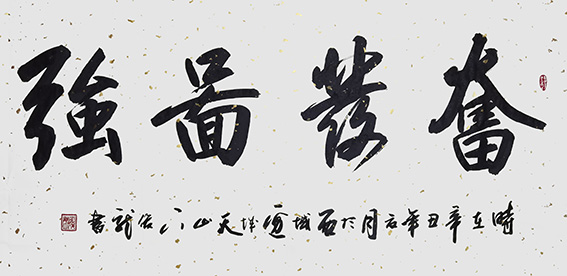 奮發圖強
時在辛丑年元月於西域邊城天山下龍書